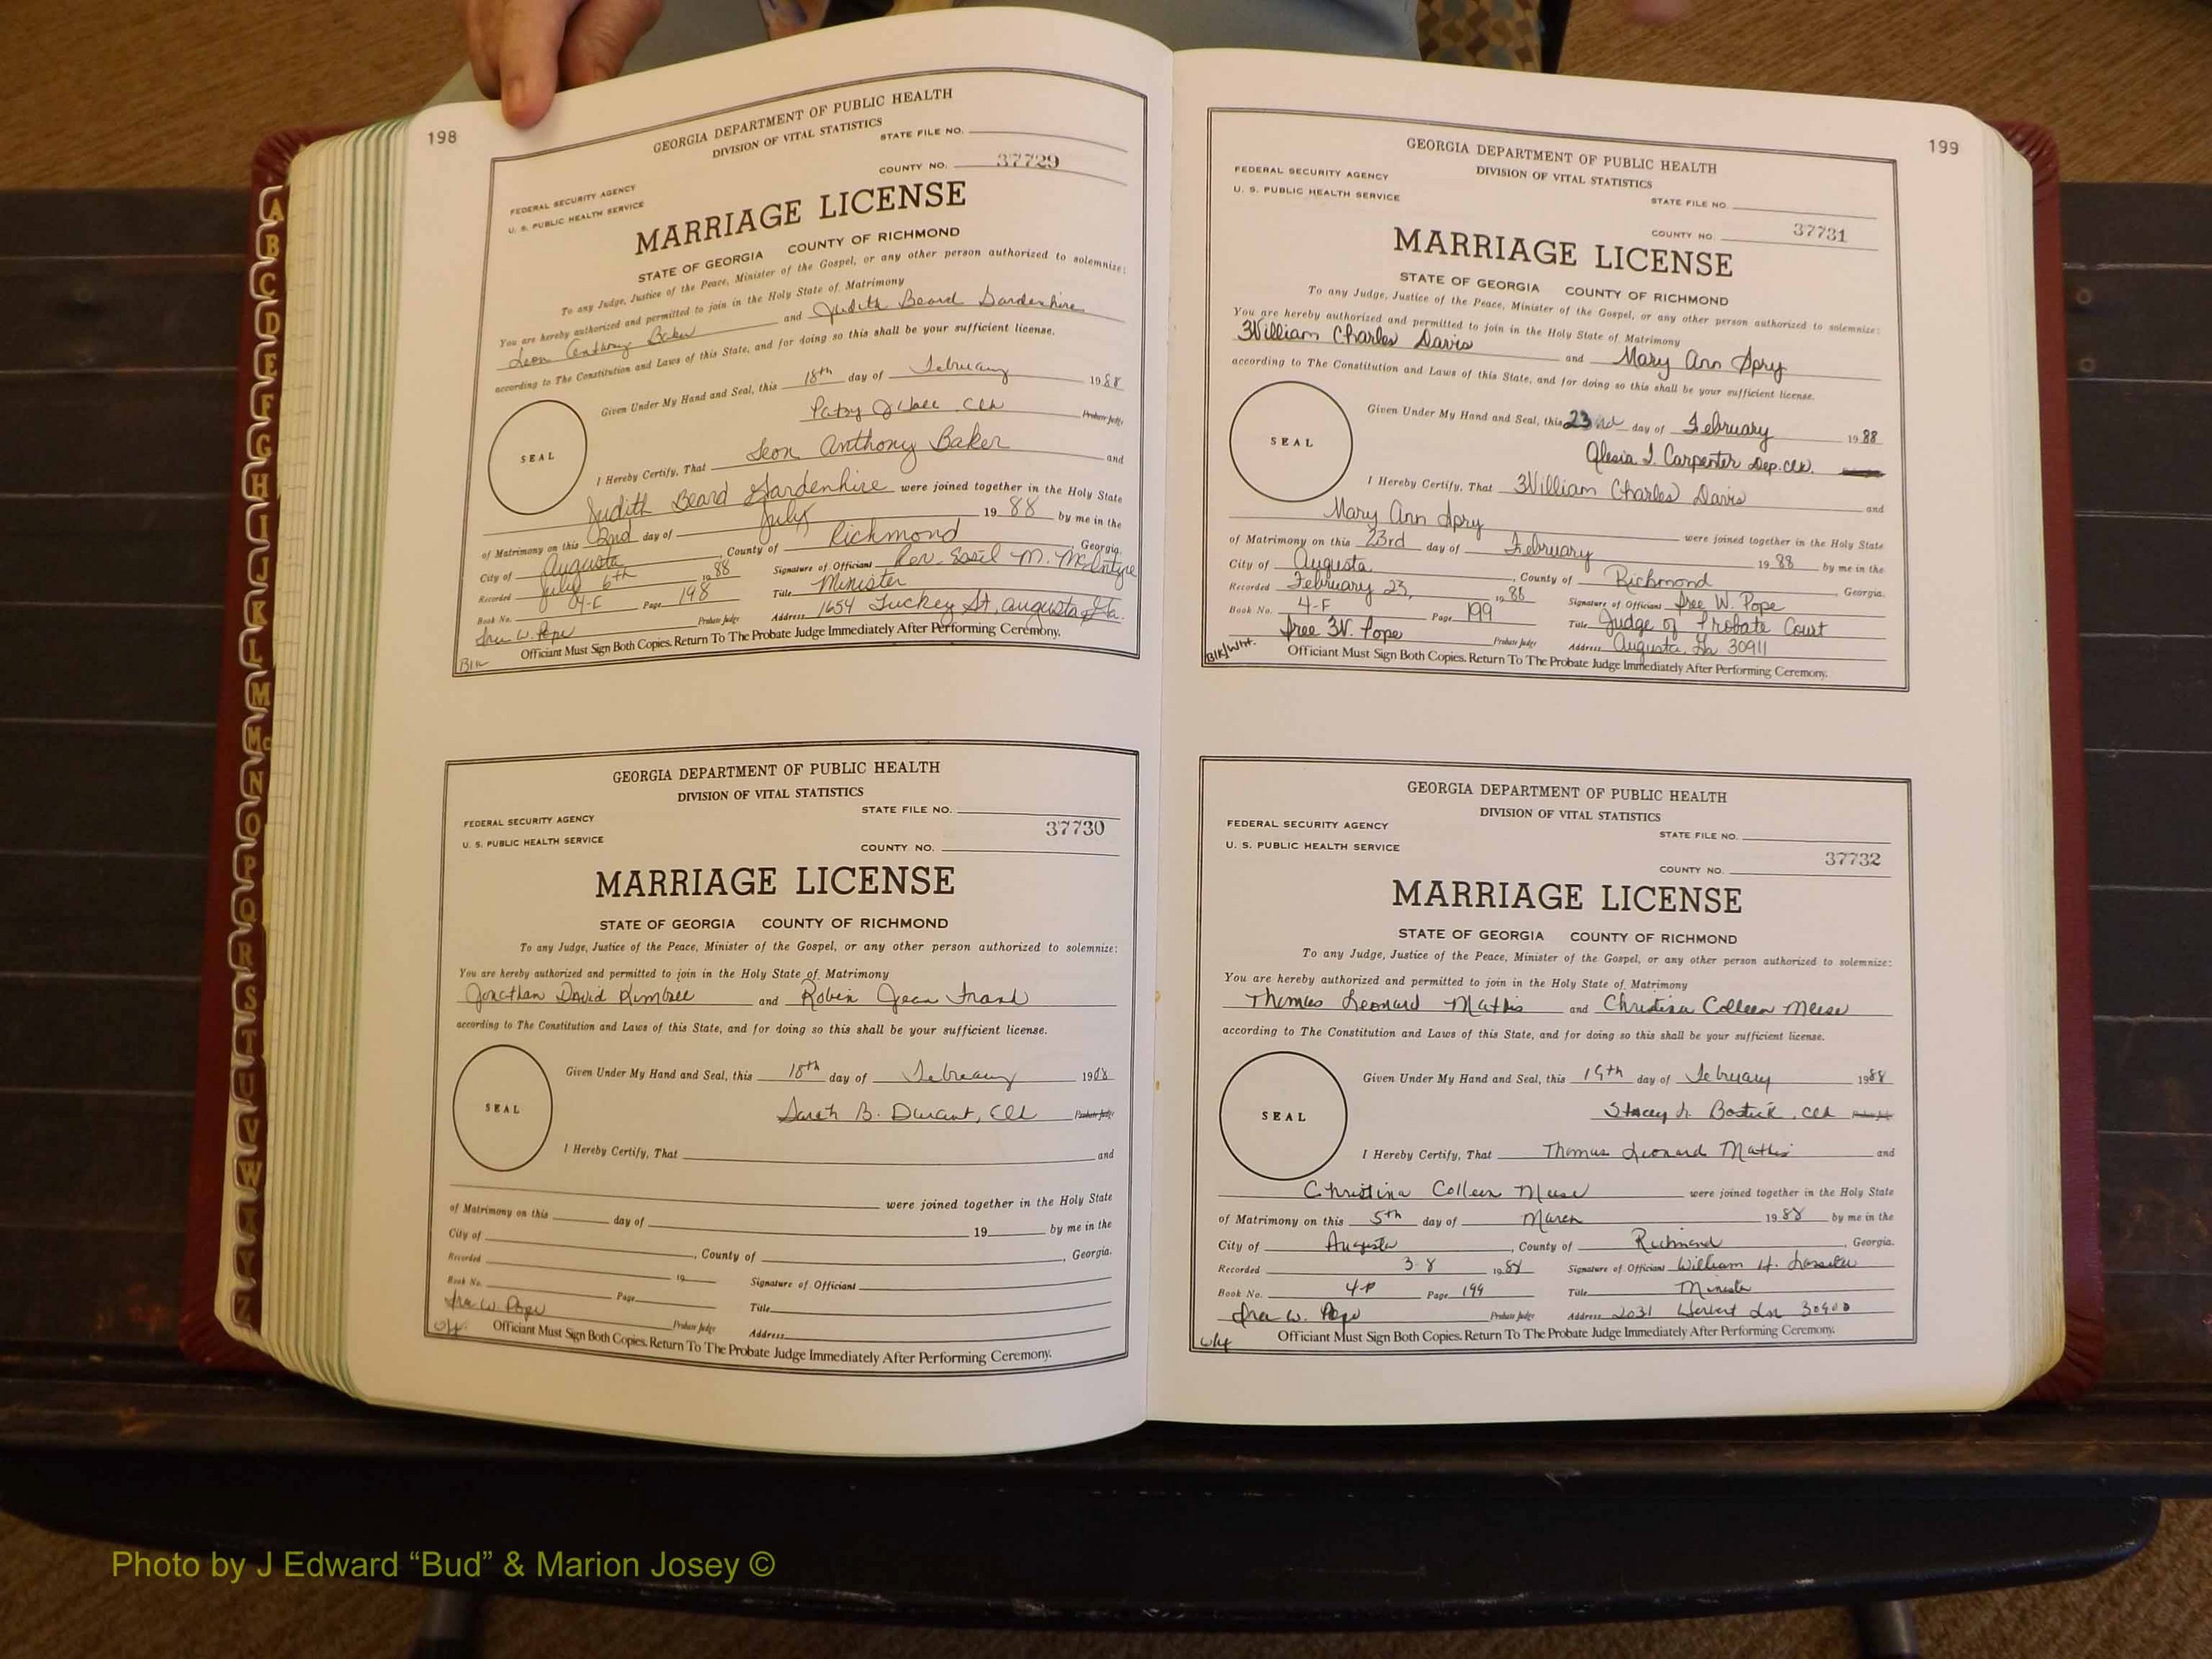 198
GEORGIA DEPARTMENT OF PUBLIC HEALTH
DIVISION OF VITAL STATISTICS
STATE FILE NO.
COUNTY NO. 37729
FEDERAL SECURITY AGENCY
U. S. PUBLIC HEALTH SERVICE
MARRIAGE LICENSE
STATE OF GEORGIA COUNTY OF RICHMOND
To any Judge, Justice of the Peace, Minister of the Gospel, or any other person authorized to solemnize:
You are hereby authorized and permitted to join in the Holy State of Matrimony
Leon Anthony Baker and Judith Beard Gardenhire
according to The Constitution and Laws of this State, and for doing so this shall be your sufficient license.
Given Under My Hand and Seal, this 18th day of February 1988
Patsy Clk Probate Judge
SEAL
I Hereby Certify, That Leon Anthony Baker and
Judith Beard Gardenhire were joined together in the Holy State
of Matrimony on this 2nd day of July 19 88 by me in the
City of Augusta, County of Richmond, Georgia.
Recorded July 6th 1988 Signature of Officiant Rev. M. McIntyre
Book No. 4-F Page 198 Title Minister
Ira W. Pope Probate Judge Address 1654 Augusta, Ga.
Blk
Officiant Must Sign Both Copies. Return To The Probate Judge Immediately After Performing Ceremony.
GEORGIA DEPARTMENT OF PUBLIC HEALTH
DIVISION OF VITAL STATISTICS
STATE FILE NO.
FEDERAL SECURITY AGENCY
37730
U. S. PUBLIC HEALTH SERVICE
COUNTY NO.
MARRIAGE LICENSE
STATE OF GEORGIA COUNTY OF RICHMOND
To any Judge, Justice of the Peace, Minister of the Gospel, or any other person authorized to solemnize:
You are hereby authorized and permitted to join in the Holy State of Matrimony
Jonathan David Kimbree and Robin Jean Frank
according to The Constitution and Laws of this State, and for doing so this shall be your sufficient license.
Given Under My Hand and Seal, this 18th day of February 1988
Sarah B. Durant, Clk Probate Judge
SEAL
I Hereby Certify, That and
were joined together in the Holy State
of Matrimony on this day of 19 by me in the
City of , County of , Georgia.
Recorded 19 Signature of Officiant
Book No. Page Title
Ira W. Pope Probate Judge Address
Officiant Must Sign Both Copies. Return To The Probate Judge Immediately After Performing Ceremony.
199
GEORGIA DEPARTMENT OF PUBLIC HEALTH
DIVISION OF VITAL STATISTICS
FEDERAL SECURITY AGENCY
U. S. PUBLIC HEALTH SERVICE
STATE FILE NO.
COUNTY NO. 37731
MARRIAGE LICENSE
STATE OF GEORGIA COUNTY OF RICHMOND
To any Judge, Justice of the Peace, Minister of the Gospel, or any other person authorized to solemnize:
You are hereby authorized and permitted to join in the Holy State of Matrimony
William Charles Davis and Mary Ann Spry
according to The Constitution and Laws of this State, and for doing so this shall be your sufficient license.
Given Under My Hand and Seal, this 23rd day of February 1988
Alesia I. Carpenter Dep. Clk.
SEAL
I Hereby Certify, That William Charles Davis and
Mary Ann Spry were joined together in the Holy State
of Matrimony on this 23rd day of February 1988 by me in the
City of Augusta, County of Richmond, Georgia.
Recorded February 23, 1988 Signature of Officiant Iree W. Pope
Book No. 4-F Page 199 Title Judge of Probate Court
Iree W. Pope Probate Judge Address Augusta, Ga 30911
Blk/Wht.
Officiant Must Sign Both Copies. Return To The Probate Judge Immediately After Performing Ceremony.
GEORGIA DEPARTMENT OF PUBLIC HEALTH
DIVISION OF VITAL STATISTICS
FEDERAL SECURITY AGENCY
STATE FILE NO.
U. S. PUBLIC HEALTH SERVICE
37732
COUNTY NO.
MARRIAGE LICENSE
STATE OF GEORGIA COUNTY OF RICHMOND
To any Judge, Justice of the Peace, Minister of the Gospel, or any other person authorized to solemnize:
You are hereby authorized and permitted to join in the Holy State of Matrimony
Thomas Leonard Mathis and Christina Colleen Meese
according to The Constitution and Laws of this State, and for doing so this shall be your sufficient license.
Given Under My Hand and Seal, this 19th day of February 1988
Stacey L. Bostick, Clk Probate Judge
SEAL
I Hereby Certify, That Thomas Leonard Mathis and
Christina Colleen Meese were joined together in the Holy State
of Matrimony on this 5th day of March 1988 by me in the
City of Augusta, County of Richmond, Georgia.
Recorded 3-8 1988 Signature of Officiant William H. Lassiter
Book No. 4-F Page 199 Title Minister
Ira W. Pope Probate Judge Address 2031
Officiant Must Sign Both Copies. Return To The Probate Judge Immediately After Performing Ceremony.
A
B
C
D
E
F
G
H
I
J
K
L
M
Mc
N
O
P
Q
R
S
T
U
V
W
X
Y
Z
Photo by J Edward “Bud” & Marion Josey ©